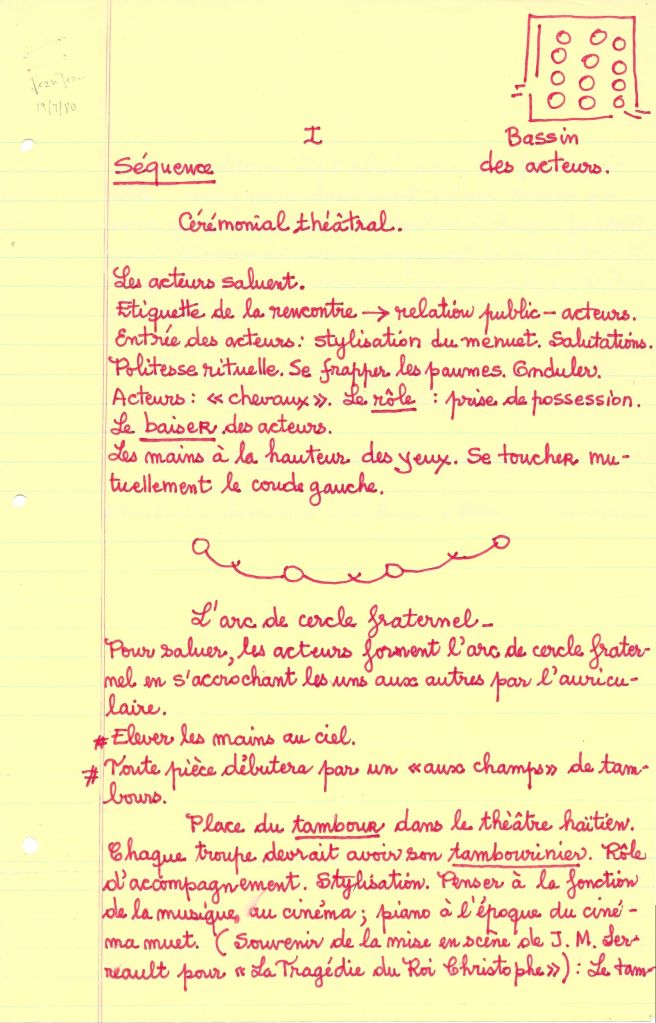 19/7/80
I
Bassin
des acteurs.
Séquence
Cérémonial théâtral.
Les acteurs saluent.
Etiquette de la rencontre → relation public – acteurs.
Entrée des acteurs : stylisation du menuet. Salutations.
Politesse rituelle. Se frapper les paumes. Onduler.
Acteurs : « chevaux ». Le rôle : prise de possession.
Le baiser des acteurs.
Les mains à la hauteur des yeux. Se toucher mu-
tuellement le coude gauche.
L'arc de cercle fraternel –
Pour saluer, les acteurs forment l'arc de cercle frater-
nel en s'accrochant les uns aux autres par l'auricu-
laire.
# Elever les mains au ciel.
# Toute pièce débutera par un « aux champs » de tam-
bours.
Place du tambour dans le théâtre haïtien.
Chaque troupe devrait avoir son tambourinier. Rôle
d'accompagnement. Stylisation. Penser à la fonction
de la musique au cinéma ; piano à l'époque du ciné-
ma muet. (Souvenir de la mise en scène de J. M. Ser-
reault pour « La Tragédie du Roi Christophe ») : Le tam-